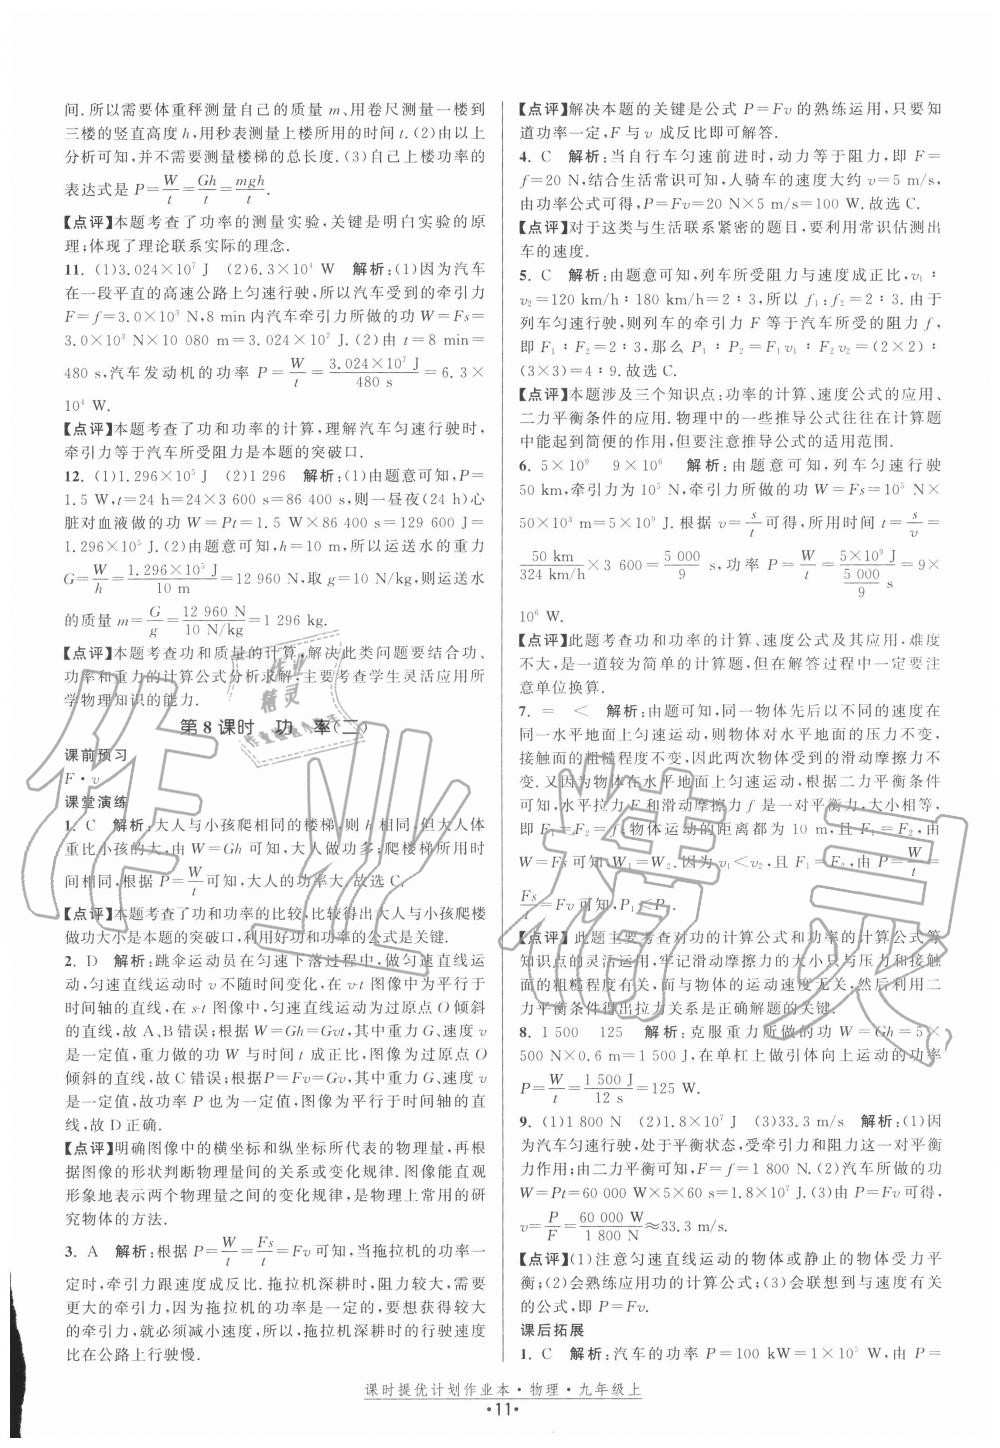 间.所以需要体重秤测量自己的质量 m、用卷尺测量一楼到
三楼的竖直高度 h,用秒表测量上楼所用的时间 t.(2)由以上
分析可知,并不需要测量楼梯的总长度.(3)自己上楼功率的
表达式是 P=W/t=Gh/t=mgh/t.
【点评】本题考查了功率的测量实验,关键是明白实验的原
理;体现了理论联系实际的理念.
11. (1)3.024×10⁷ J (2)6.3×10⁴ W 解析:(1)因为汽车
在一段平直的高速公路上匀速行驶,所以汽车受到的牵引力
F=f=3.0×10³ N,8 min内汽车牵引力所做的功 W=Fs=
3.0×10³ N×10 080 m=3.024×10⁷ J.(2)由 t=8 min=
480 s,汽车发动机的功率 P=W/t=3.024×10⁷ J/480 s=6.3×
10⁴ W.
【点评】本题考查了功和功率的计算,理解汽车匀速行驶时,
牵引力等于汽车所受阻力是本题的突破口.
12. (1)1.296×10⁵ J (2)1 296 解析:(1)由题意可知,P=
1.5 W,t=24 h=24×3 600 s=86 400 s,则一昼夜(24 h)心
脏对血液做的功 W=Pt=1.5 W×86 400 s=129 600 J=
1.296×10⁵ J.(2)由题意可知,h=10 m,所以运送水的重力
G=W/h=1.296×10⁵ J/10 m=12 960 N,取 g=10 N/kg,则运送水
的质量 m=G/g=12 960 N/10 N/kg=1 296 kg.
【点评】本题考查功和质量的计算,解决此类问题要结合功、
功率和重力的计算公式分析求解,主要考查学生灵活应用所
学物理知识的能力.
第 8 课时 功 率(二)
课前预习
F·v
课堂演练
1. C 解析:大人与小孩爬相同的楼梯,则 h 相同,但大人体
重比小孩的大,由 W=Gh 可知,大人做功多;爬楼梯所用时
间相同,根据 P=W/t可知,大人的功率大.故选 C.
【点评】本题考查了功和功率的比较,比较得出大人与小孩爬楼
做功大小是本题的突破口,利用好功和功率的公式是关键.
2. D 解析:跳伞运动员在匀速下落过程中,做匀速直线运
动,匀速运动时速度 v 不随时间变化,在 v-t 图像中为平行于
时间轴的直线,在 s-t 图像中,匀速直线运动为过原点 O 倾斜
的直线,故 A、B 错误;根据 W=Gh=Gvt,其中重力 G、速度 v
是一定值,重力做的功 W 与时间 t 成正比,图像为过原点 O
倾斜的直线,故 C 错误;根据 P=Fv=Gv,其中重力 G、速度 v
是一定值,故功率 P 也为一定值,图像为平行于时间轴的直
线,故 D 正确.
【点评】明确图像中的横坐标和纵坐标所代表的物理量,再根
据图像的形状判断物理量间的关系或变化规律.图像能直观
形象地表示两个物理量之间的变化规律,是物理上常用的研
究物体的方法.
3. A 解析:根据 P=W/t=Fs/t=Fv 可知,当拖拉机的功率一
定时,牵引力跟速度成反比.拖拉机深耕时,阻力较大,需要
更大的牵引力,因为拖拉机的功率是一定的,要想获得较大
的牵引力,就必须减小速度,所以,拖拉机深耕时的行驶速度
比在公路上行驶慢.
【点评】解决本题的关键是公式 P=Fv 的熟练运用,只要知
道功率一定,F 与 v 成反比即可解答.
4. C 解析:当自行车匀速前进时,动力等于阻力,即 F=
f=20 N,结合生活常识可知,人骑车的速度大约 v=5 m/s,
由功率公式可得,P=Fv=20 N×5 m/s=100 W.故选 C.
【点评】对于这类与生活联系紧密的题目,要利用常识估测出
车的速度.
5. C 解析:由题意可知,列车所受阻力与速度成正比,v₁∶
v₂=120 km/h∶180 km/h=2∶3,所以 f₁∶f₂=2∶3.由于
列车匀速行驶,则列车的牵引力 F 等于汽车所受的阻力 f,
即 F₁∶F₂=2∶3,那么 P₁∶P₂=F₁v₁∶F₂v₂=(2×2)∶
(3×3)=4∶9.故选 C.
【点评】本题涉及三个知识点:功率的计算、速度公式的应用、
二力平衡条件的应用.物理中的一些推导公式往往在计算题
中能起到简便的作用,但要注意推导公式的适用范围.
6. 5×10⁹ 9×10⁶ 解析:由题意可知,列车匀速行驶
50 km,牵引力为 10⁵ N,牵引力所做的功 W=Fs=10⁵ N×
50×10³ m=5×10⁹ J.根据 v=s/t可得,所用时间 t=s/v=
50 km/324 km/h×3 600=5 000/9 s,功率 P=W/t=5×10⁹ J/(5 000/9 s)=9×
10⁶ W.
【点评】此题考查功和功率的计算、速度公式及其应用,难度
不大,是一道较为简单的计算题,但在解答过程中一定要注
意单位换算.
7. = < 解析:由题意可知,同一物体先后以不同的速度在
同一水平地面上匀速运动,则物体对水平地面的压力不变,
接触面的粗糙程度不变,因此物体受到的滑动摩擦力不
变.又因为物体在水平地面上匀速运动,根据二力平衡条件
可知,水平拉力 F 和滑动摩擦力 f 是一对平衡力,大小相等,
即 F₁=F₂=f,物体运动的距离都为 10 m,且 F₁=F₂,由
W=Fs 可知 W₁=W₂.因为 v₁<v₂,且 F₁=F₂,由 P=W/t=
Fs/t=Fv 可知,P₁<P₂.
【点评】此题主要考查对功的计算公式和功率的计算公式等
知识点的灵活运用,牢记滑动摩擦力的大小只与压力和接触
面的粗糙程度有关,而与物体的运动速度无关,然后利用二
力平衡条件得出拉力关系是正确解题的关键.
8. 1 500 125 解析:克服重力所做的功 W=Gh=5×
500 N×0.6 m=1 500 J,在单杠上做引体向上运动的功率
P=W/t=1 500 J/12 s=125 W.
9. (1)1 800 N (2)1.8×10⁷ J (3)33.3 m/s 解析:(1)因
为汽车匀速行驶,处于平衡状态,受牵引力和阻力这一对平衡
力作用;由二力平衡可知,F=f=1 800 N.(2)汽车所做的功
W=Pt=60 000 W×5×60 s=1.8×10⁷ J.(3)由 P=Fv 可得,
v=P/F=60 000 W/1 800 N≈33.3 m/s.
【点评】(1)注意匀速直线运动的物体或静止的物体受力平
衡;(2)会熟练应用功的计算公式;(3)会联想到与速度有关
的公式,即 P=Fv.
课后拓展
1. C 解析:汽车的功率 P=100 kW=1×10⁵ W,由 P=
课时提优计划作业本·物理·九年级上
·11·
作业精灵
作业
精灵